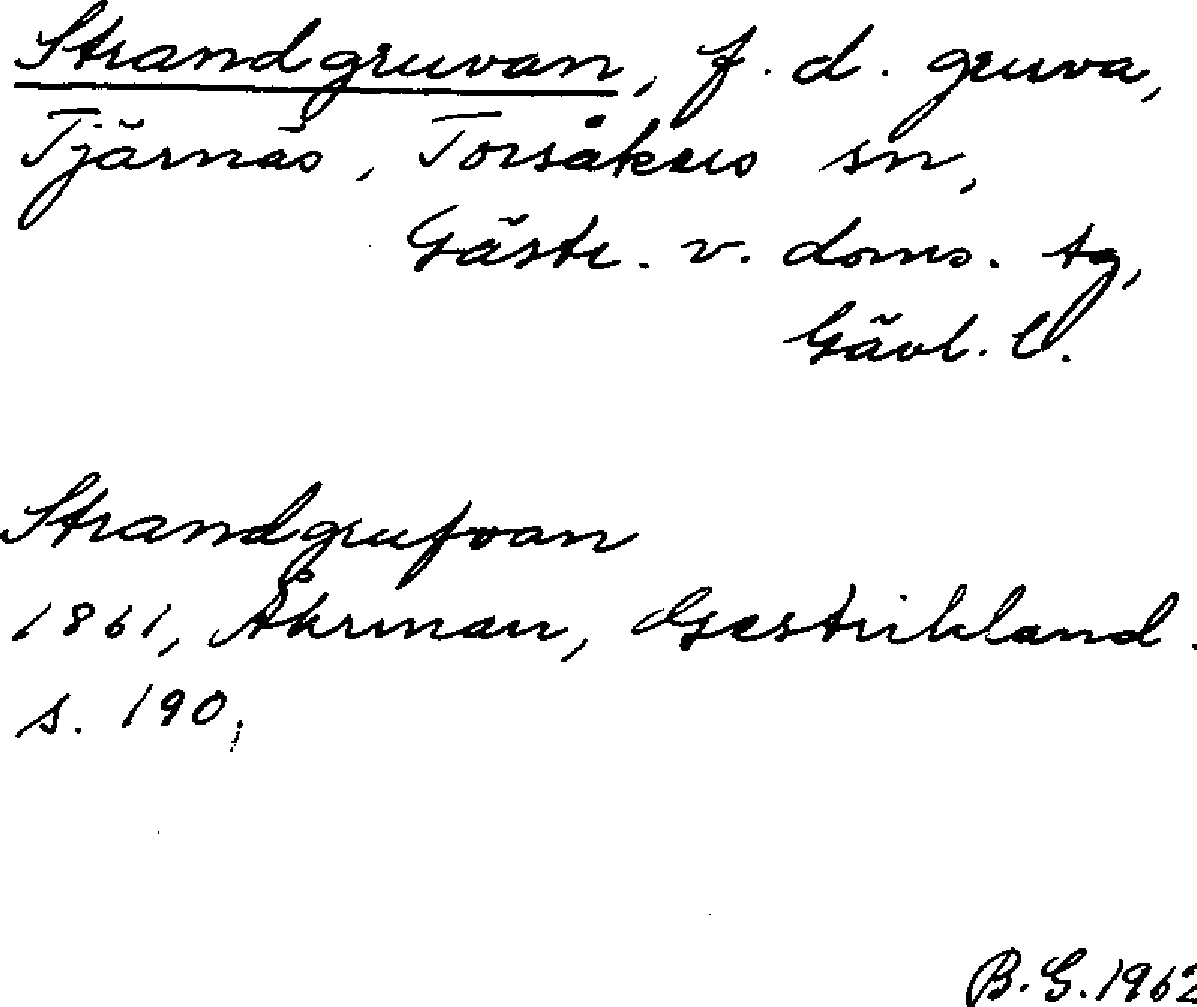 Strandgruvan, f. d. gruva,
Tjärnäs, Torsåkers sn,
Gästr. v. doms. tg,
Gävl. l.
Strandgrufvan
1861, Åkrman, Gestrikland.
s. 190;
B.G. 1962